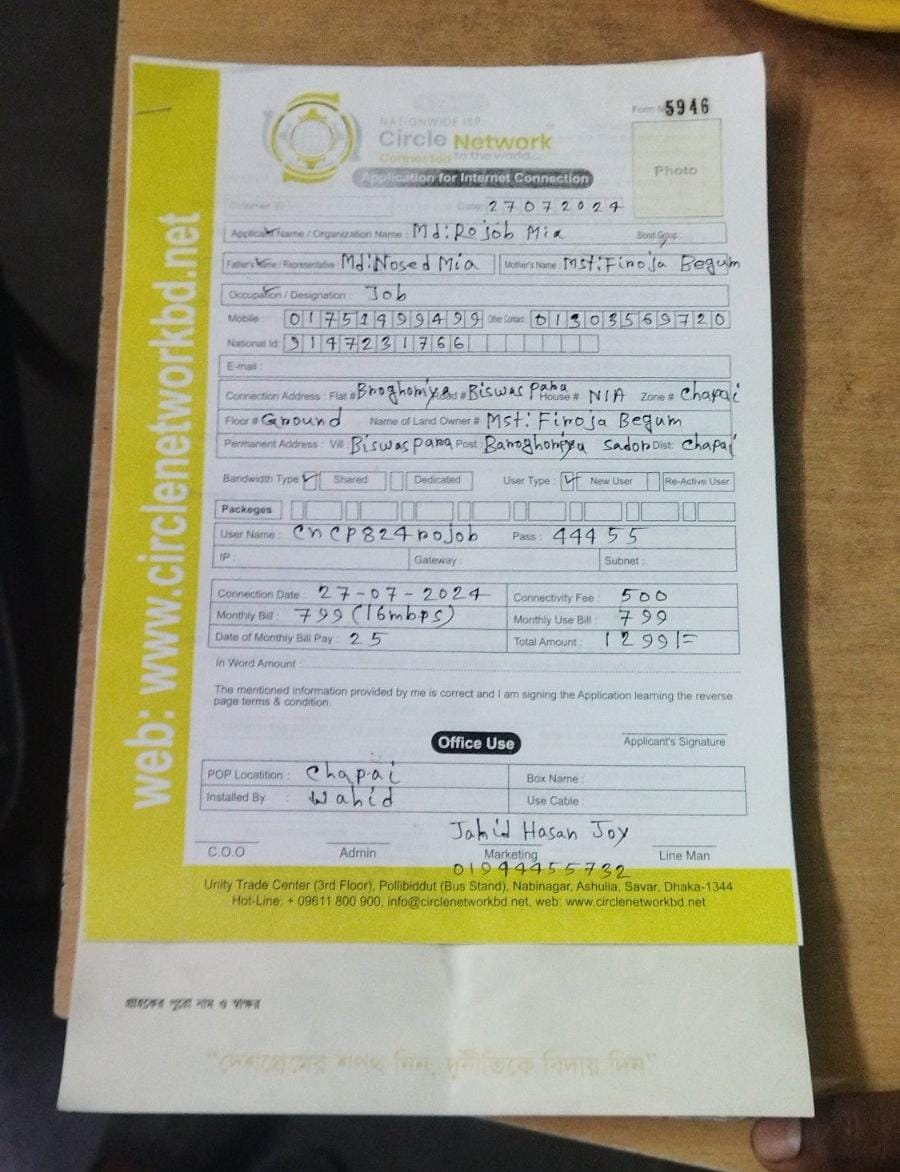 web: www.circlenetworkbd.net
Form No 5946
NATIONWIDE ISP
Circle Network
Connected to the world...
Application for Internet Connection
Photo
Customer ID
Date: 27072024
Applicant Name / Organization Name : Md: Rojob Mia Blood Group :
Father's Name / Representative Md: Nosed Mia Mother's Name : Mst: Firoja Begum
Occupation / Designation : Job
Mobile : 01751499499 Other Contact : 01303569720
National Id: 9147231766
E-mail :
Connection Address : Flat # Baroghoriya Road # Biswas para House # N/A Zone # Chapai
Floor # Ground Name of Land Owner # Mst: Firoja Begum
Permanent Address : Vill Biswas para Post : Baroghoriya Sador Dist: Chapai
Bandwidth Type Shared Dedicated User Type : New User Re-Active User
Packeges
User Name : cncp824rojob Pass : 44455
IP : Gateway : Subnet :
Connection Date : 27-07-2024 Connectivity Fee : 500
Monthly Bill : 799 (16mbps) Monthly Use Bill : 799
Date of Monthly Bill Pay : 25 Total Amount : 1299/=
In Word Amount :
The mentioned information provided by me is correct and I am signing the Application learning the reverse
page terms & condition.
Office Use
Applicant's Signature
POP Locatition : Chapai Box Name :
Installed By : Wahid Use Cable :
Jahid Hasan Joy
C.O.O Admin Marketing Line Man
01944455732
Unity Trade Center (3rd Floor), Pollibiddut (Bus Stand), Nabinagar, Ashulia, Savar, Dhaka-1344
Hot-Line: + 09611 800 900, info@circlenetworkbd.net, web: www.circlenetworkbd.net
গ্রাহকের পুরো নাম ও স্বাক্ষর
"দেশপ্রেমের শপথ নিন, দুর্নীতিকে বিদায় দিন"